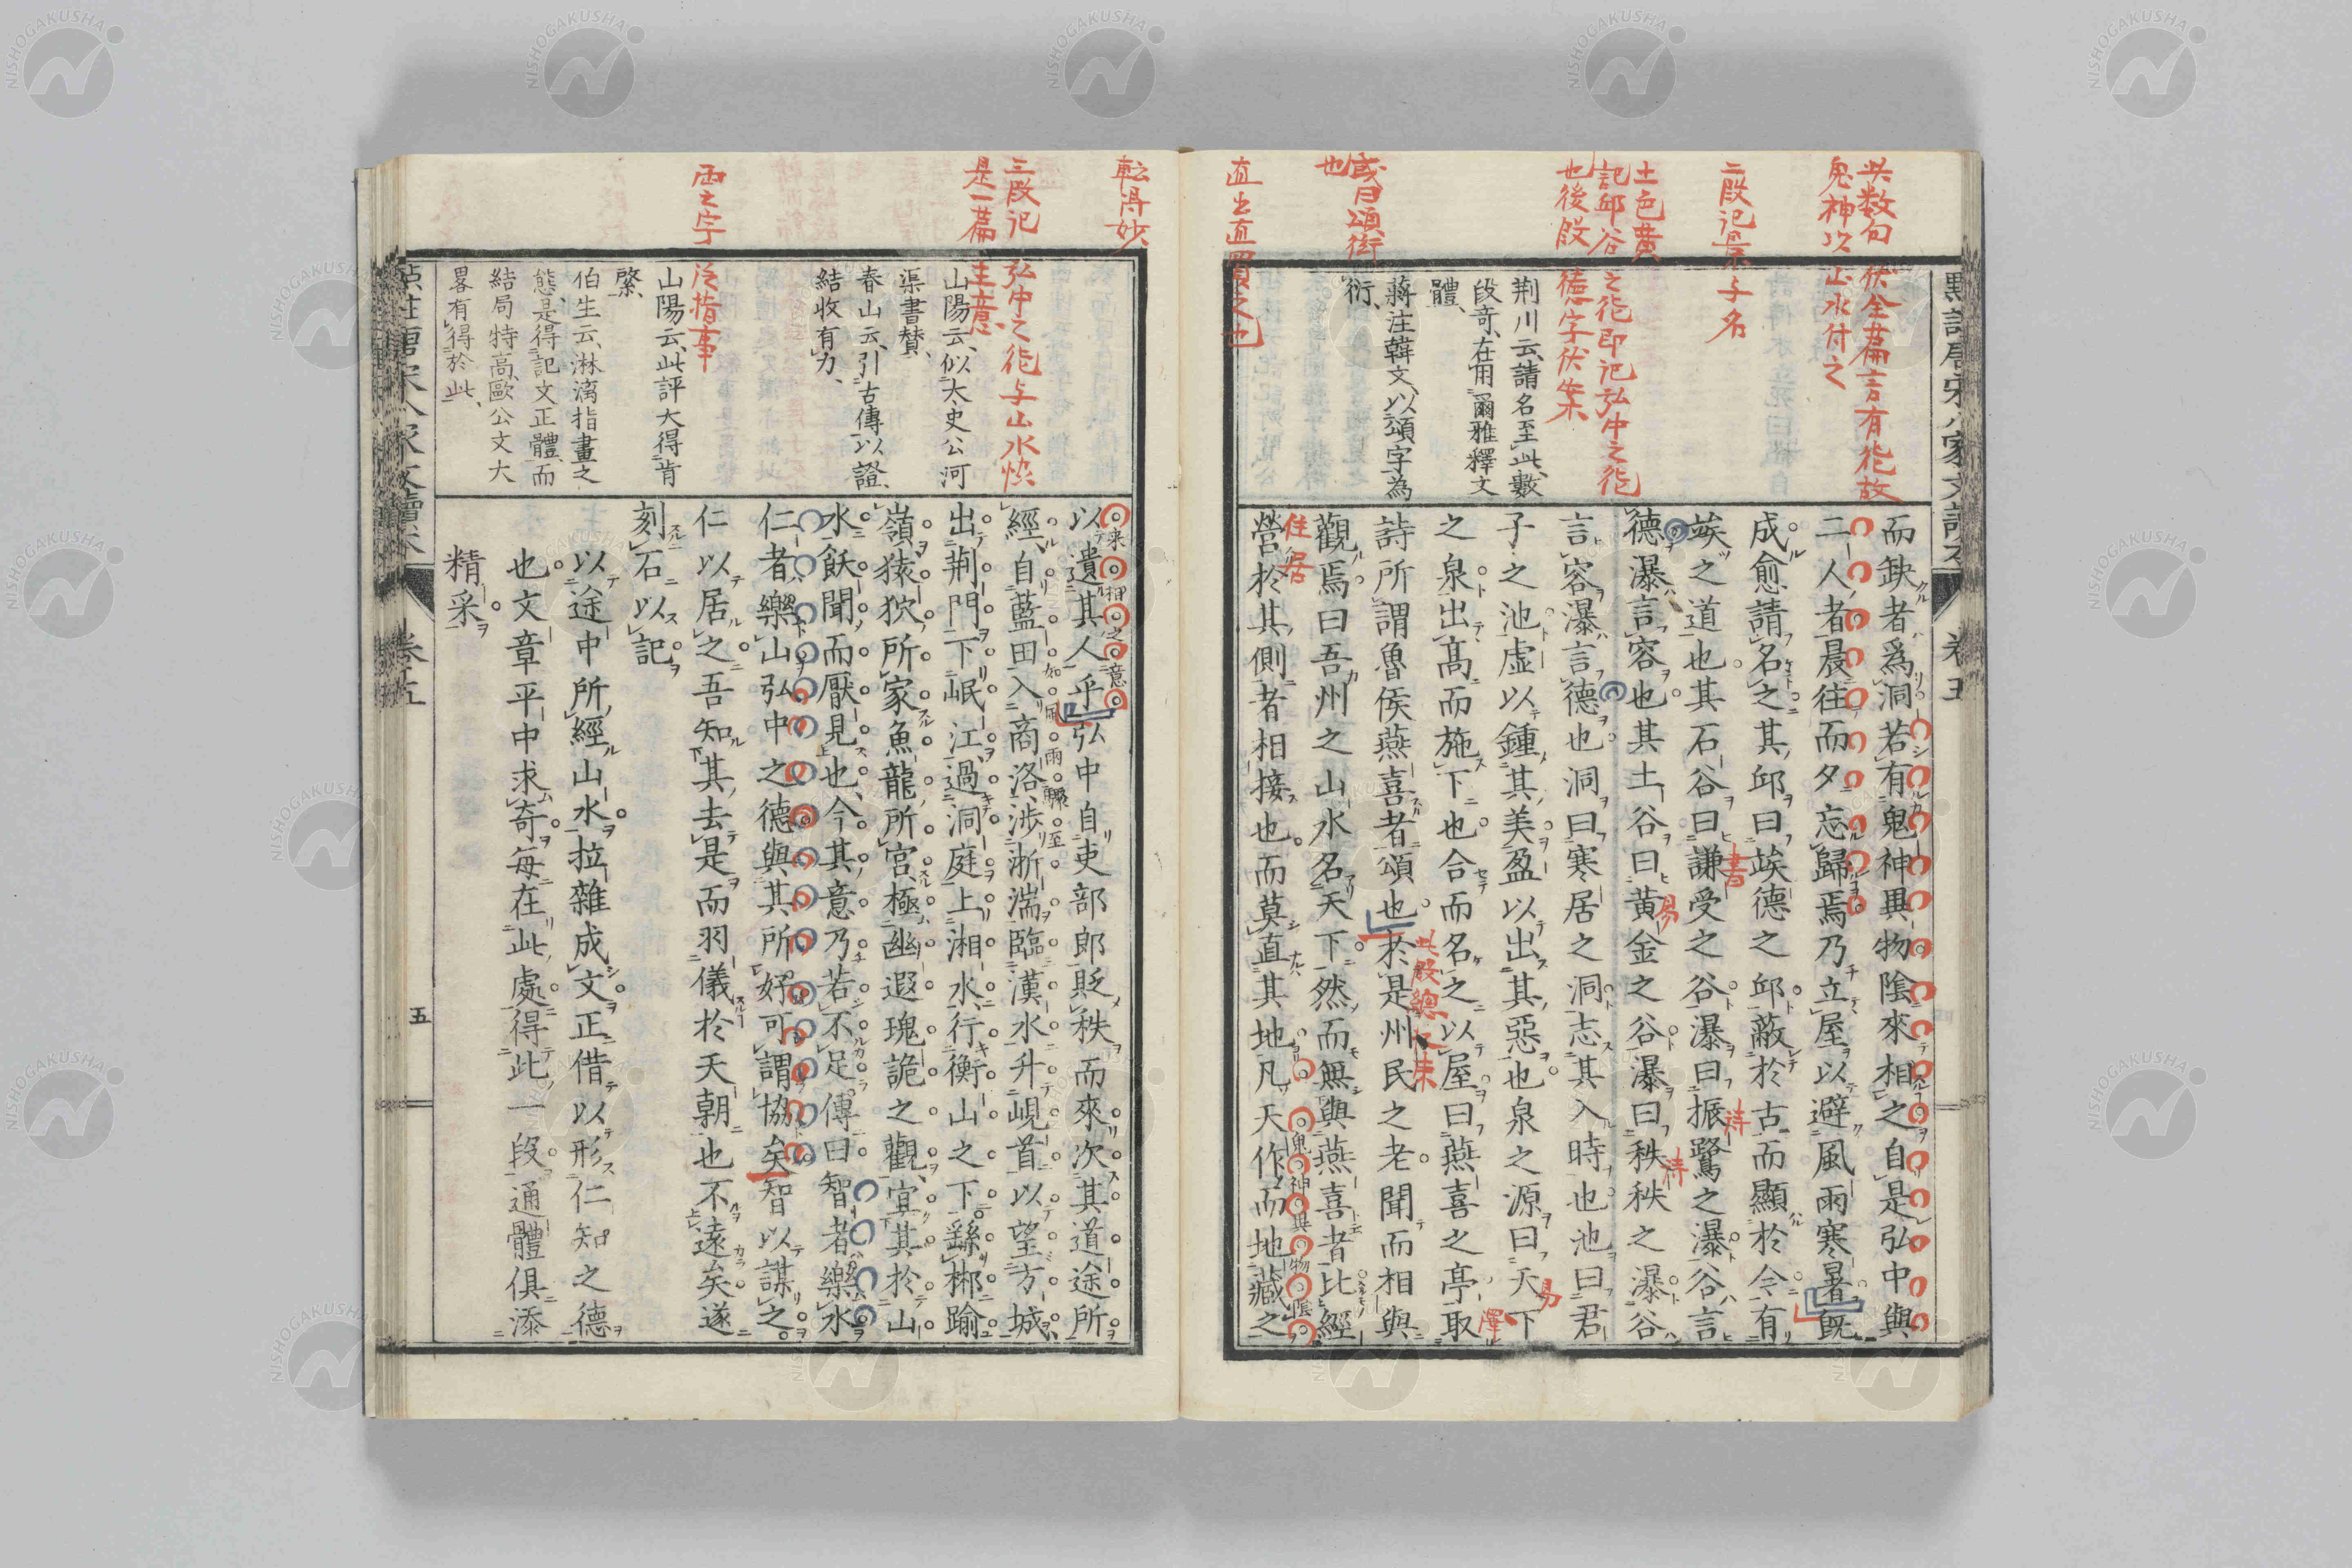 二段記景与名
土色黄
記邱谷之徳即記弘中之徳
也後段徳字伏案
荆川云、請名至此數
段奇、在用爾雅釋文
體、
蔣注韓文、以頌字爲
衍、
或曰頌衍
也
直出直買之也
而缺者爲洞若有鬼神異物陰來相之自是弘中與
二人者晨往而夕忘歸焉乃立屋以避風雨寒暑既
成愈請名之其邱曰竢德之邱蔽於古而顯於今有
竢之道也其石谷曰謙受之谷瀑曰振鷺之瀑谷言
德瀑言容也其土谷曰黃金之谷瀑曰秩秩之瀑谷
言容瀑言德也洞曰寒居之洞志其入時也池曰君
子之池虛以鍾其美盈以出其惡也泉之源曰天下
之泉出高而施下也合而名之以屋曰燕喜之亭取
詩所謂魯侯燕喜者頌也於是州民之老聞而相與
觀焉曰吾州之山水名天下然而無與燕喜者比經
營於其側者相接也而莫直其地凡天作而地藏之
卷五
転得妙
三段記弘中之徳与山水快
是一篇主意
山陽云、似大史公河
渠書賛、
春山云、引古傳以證、
結收有力、
両之字泛指事
山陽云、此評大得肯
綮、
伯生云、淋漓指畫之
態、是得記文正體、而
結局特高、歐公文大
畧有得於此、
以遺其人乎弘中自吏部郎貶秩而來次其道途所
經自藍田入商洛渉淅湍臨漢水升峴首以望方城
出荆門下岷江過洞庭上湘水行衡山之下繇郴踰
嶺猿狖所家魚龍所宮極幽遐瑰詭之觀宜其於山
水飫聞而厭見也今其意乃若不足傳曰智者樂水
仁者樂山弘中之德與其所好可謂協矣智以謀之
仁以居之吾知其去是而羽儀於天朝也不遠矣遂
刻石以記
以途中所經山水拉雜成文正借以形仁知之德
也文章平中求奇每在此處得此一段通體俱添
精采
卷五
五